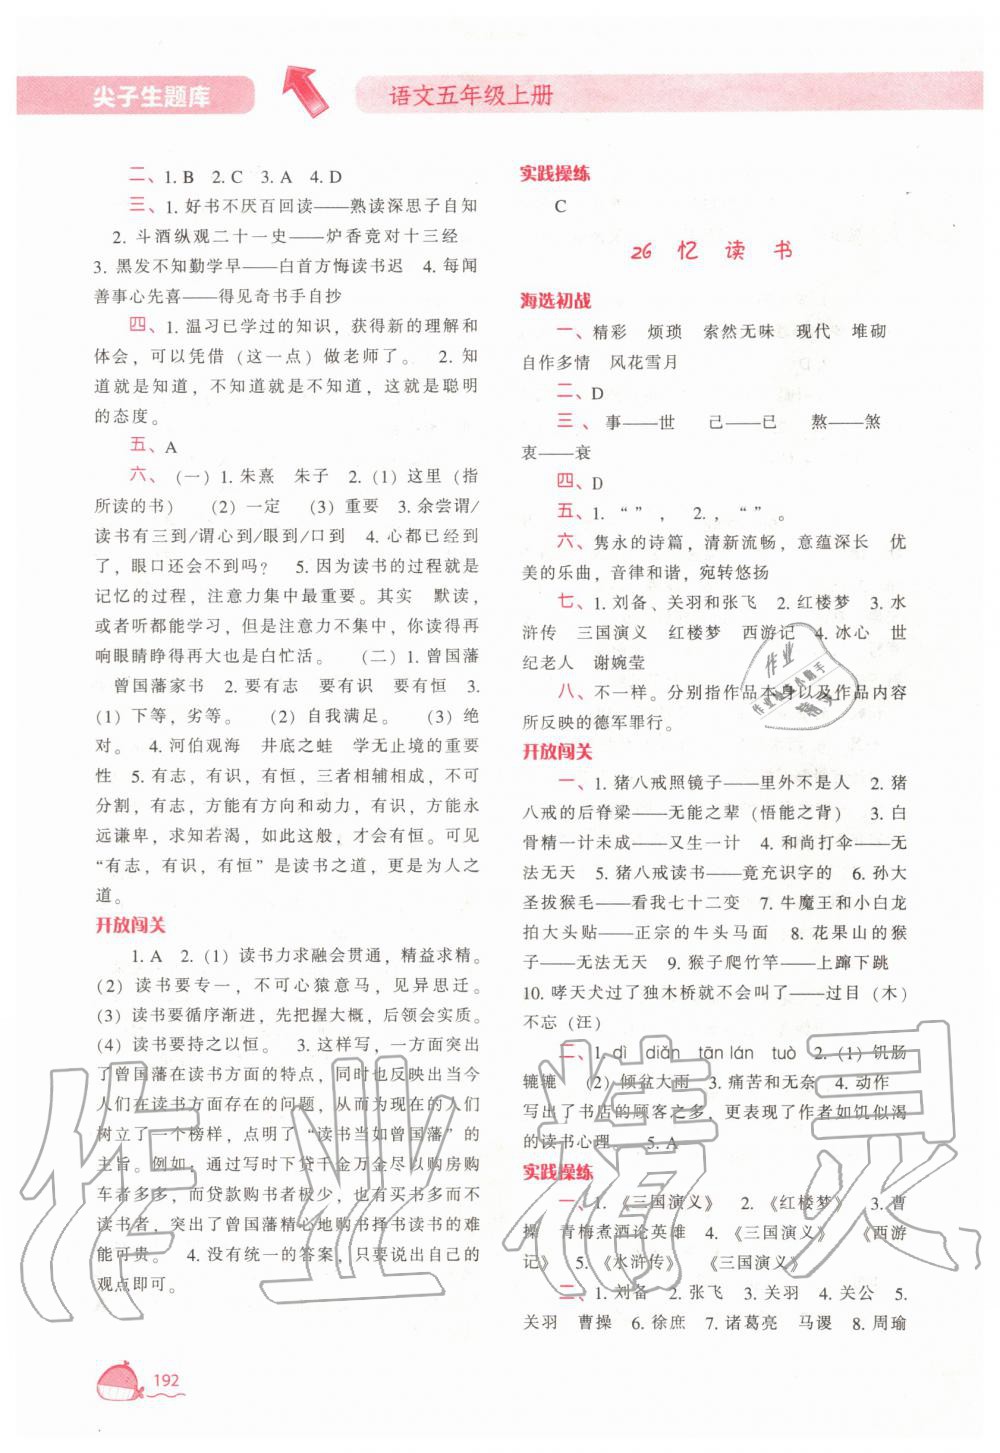 尖子生题库
语文五年级上册
二、1. B 2. C 3. A 4. D
三、1. 好书不厌百回读——熟读深思子自知
2. 斗酒纵观二十一史——炉香竞对十三经
3. 黑发不知勤学早——白首方悔读书迟 4. 每闻
善事心先喜——得见奇书手自抄
四、1. 温习已学过的知识，获得新的理解和
体会，可以凭借（这一点）做老师了。 2. 知
道就是知道，不知道就是不知道，这就是聪明
的态度。
五、A
六、（一）1. 朱熹 朱子 2. (1) 这里（指
所读的书） (2) 一定 (3) 重要 3. 余尝谓/
读书有三到/谓心到/眼到/口到 4. 心都已经到
了，眼口还会不到吗？ 5. 因为读书的过程就是
记忆的过程，注意力集中最重要。其实 默读，
或者听都能学习，但是注意力不集中，你读得再
响眼睛睁得再大也是白忙活。 （二）1. 曾国藩
曾国藩家书 2. 要有志 要有识 要有恒 3.
(1) 下等，劣等。 (2) 自我满足。 (3) 绝
对。 4. 河伯观海 井底之蛙 学无止境的重要
性 5. 有志，有识，有恒，三者相辅相成，不可
分割，有志，方能有方向和动力，有识，方能永
远谦卑，求知若渴，如此这般，才会有恒。可见
“有志，有识，有恒”是读书之道，更是为人之
道。
开放闯关
1. A 2. (1) 读书力求融会贯通，精益求精。
(2) 读书要专一，不可心猿意马，见异思迁。
(3) 读书要循序渐进，先把握大概，后领会实质。
(4) 读书要持之以恒。 3. 这样写，一方面突出
了曾国藩在读书方面的特点，同时也反映出当今
人们在读书方面存在的问题，从而为现在的人们
树立了一个榜样，点明了“读书当如曾国藩”的
主旨。例如，通过写时下贷千金万金尽以购房购
车者多多，而贷款购书者极少，也有买书多而咸
读书者，突出了曾国藩精心地购书择书读书的难
能可贵。 4. 没有统一的答案，只要说出自己的
观点即可。
192
实践操练
C
26 忆 读 书
海选初战
一、精彩 烦琐 索然无味 现代 堆砌
自作多情 风花雪月
二、D
三、事——世 己——已 熬——煞
衷——衰
四、D
五、1. “ ” ， 2. ，“ ” 。
六、隽永的诗篇，清新流畅，意蕴深长 优
美的乐曲，音律和谐，宛转悠扬
七、1. 刘备、关羽和张飞 2. 红楼梦 3. 水
浒传 三国演义 红楼梦 西游记 4. 冰心 世
纪老人 谢婉莹
八、不一样。分别指作品本身以及作品内容
所反映的德军罪行。
开放闯关
一、1. 猪八戒照镜子——里外不是人 2. 猪
八戒的后脊梁——无能之辈（悟能之背） 3. 白
骨精一计未成——又生一计 4. 和尚打伞——无
法无天 5. 猪八戒读书——竟充识字的 6. 孙大
圣拔猴毛——看我七十二变 7. 牛魔王和小白龙
拍大头贴——正宗的牛头马面 8. 花果山的猴
子——无法无天 9. 猴子爬竹竿——上蹿下跳
10. 哮天犬过了独木桥就不会叫了——过目（木）
不忘（汪）
二、1. dì diǎn tān lán tuò 2. (1) 饥肠
辘辘 (2) 倾盆大雨 3. 痛苦和无奈 4. 动作
写出了书店的顾客之多，更表现了作者如饥似渴
的读书心理。 5. A
实践操练
一、1. 《三国演义》 2. 《红楼梦》 3. 曹
操 青梅煮酒论英雄 4. 《三国演义》 《西游
记》 5. 《水浒传》 《三国演义》
二、1. 刘备 2. 张飞 3. 关羽 4. 关公 5.
关羽 曹操 6. 徐庶 7. 诸葛亮 马谡 8. 周瑜
作业精灵